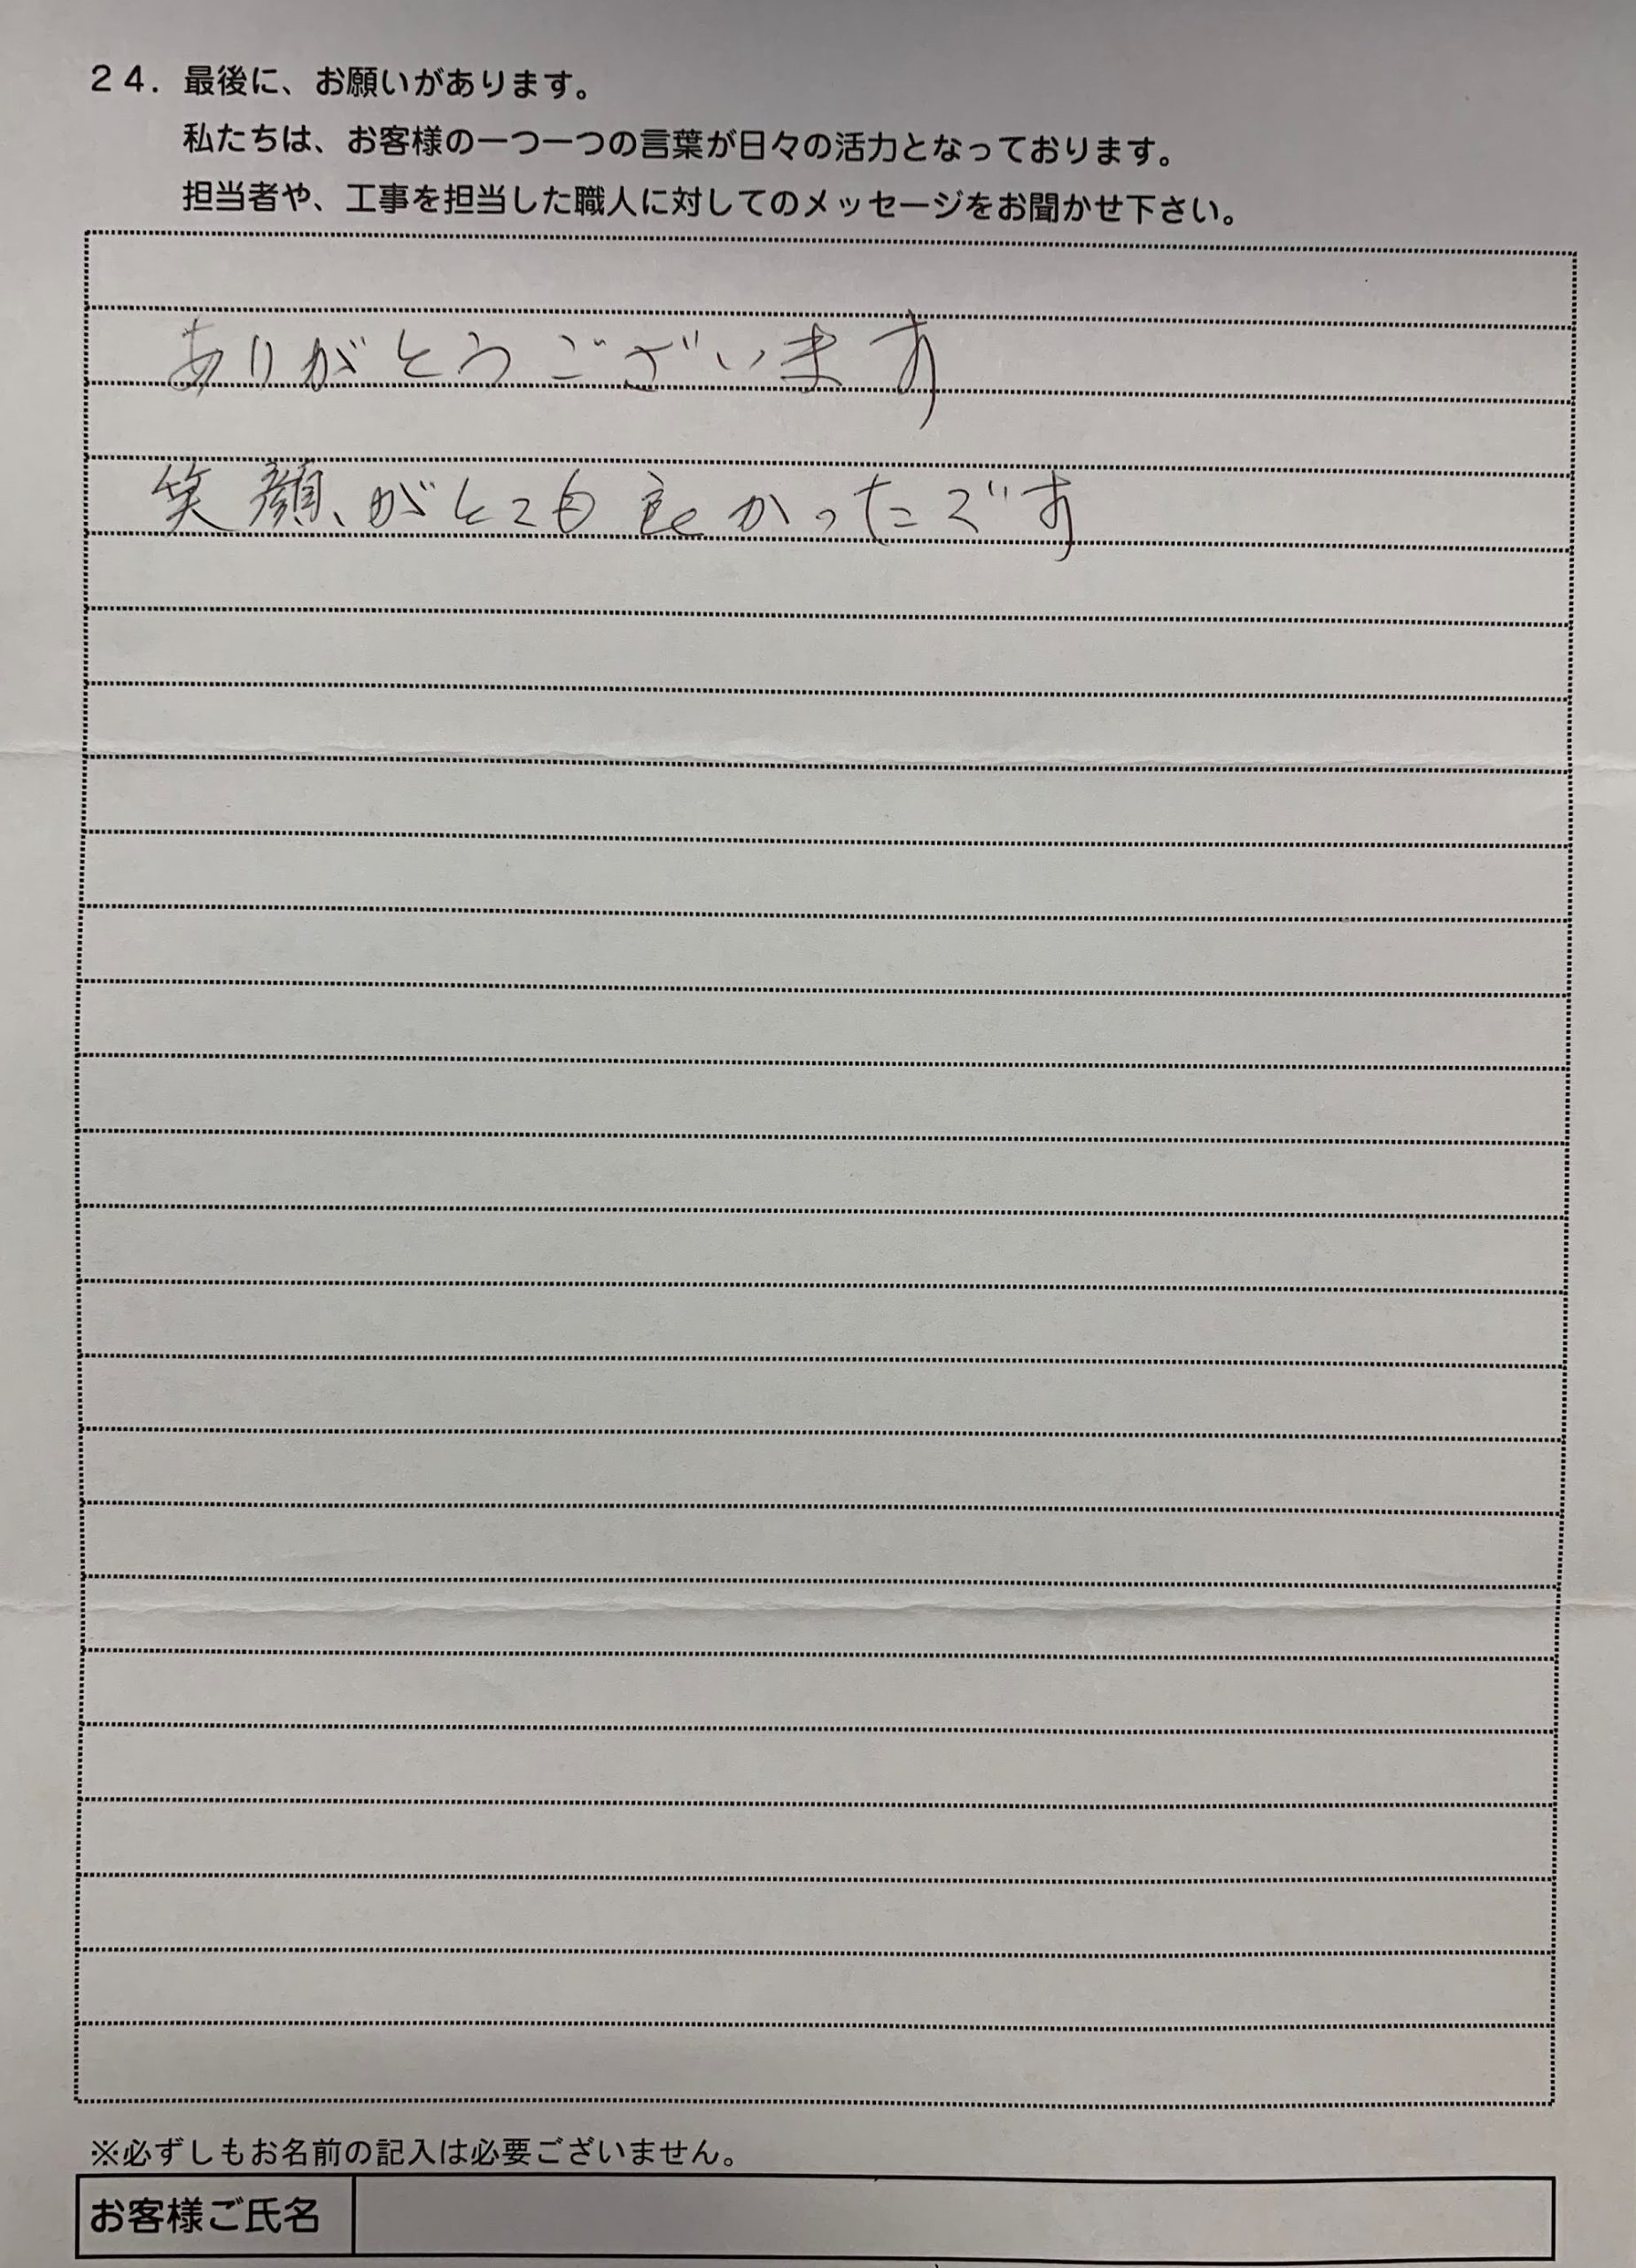 ２４．最後に、お願いがあります。
私たちは、お客様の一つ一つの言葉が日々の活力となっております。
担当者や、工事を担当した職人に対してのメッセージをお聞かせ下さい。
ありがとうございます
笑顔がとても良かったです
※必ずしもお名前の記入は必要ございません。
お客様ご氏名